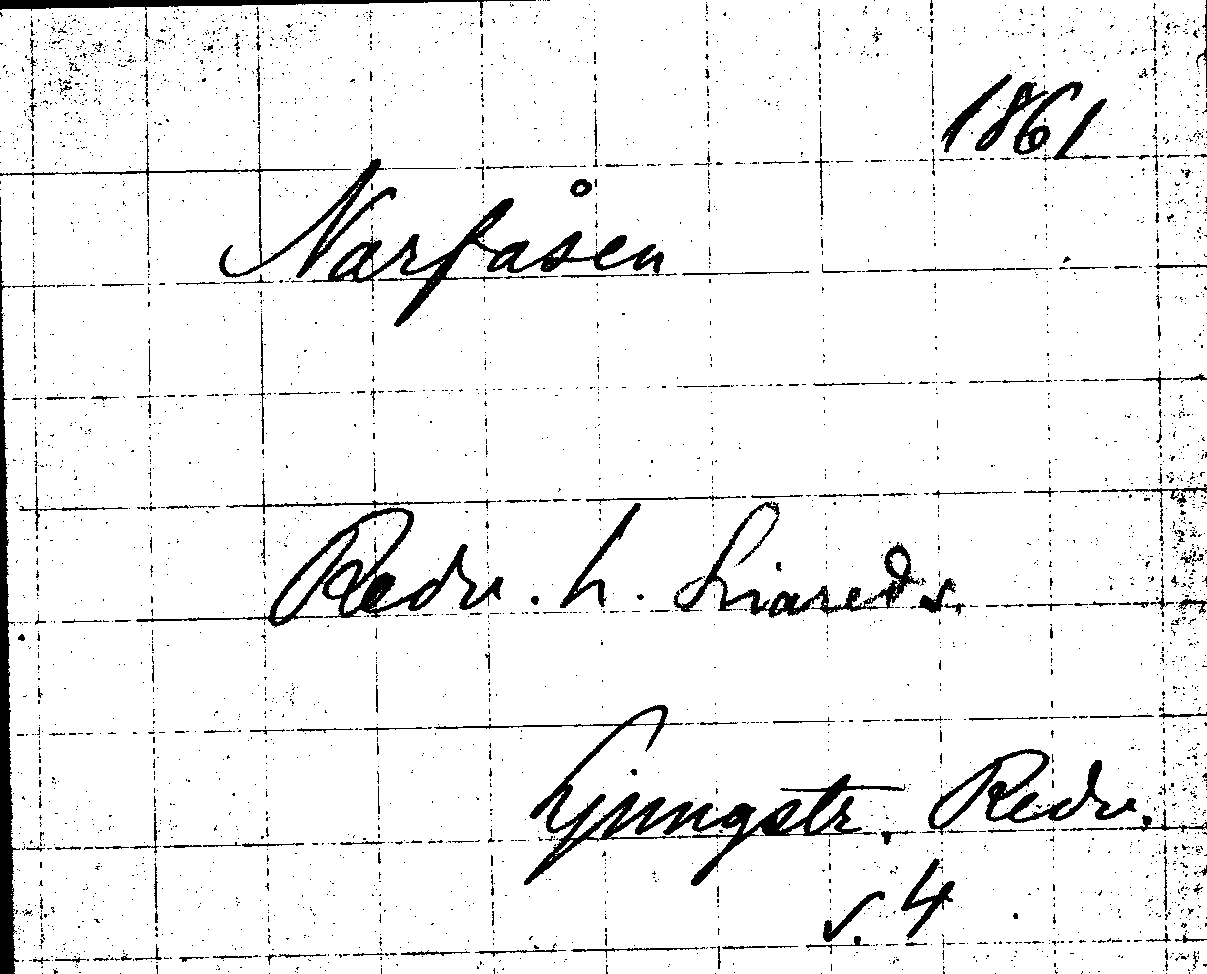 1861
Narfåsen
Redv. h. Liared s.
Ljungstr. Redv.
s. 4